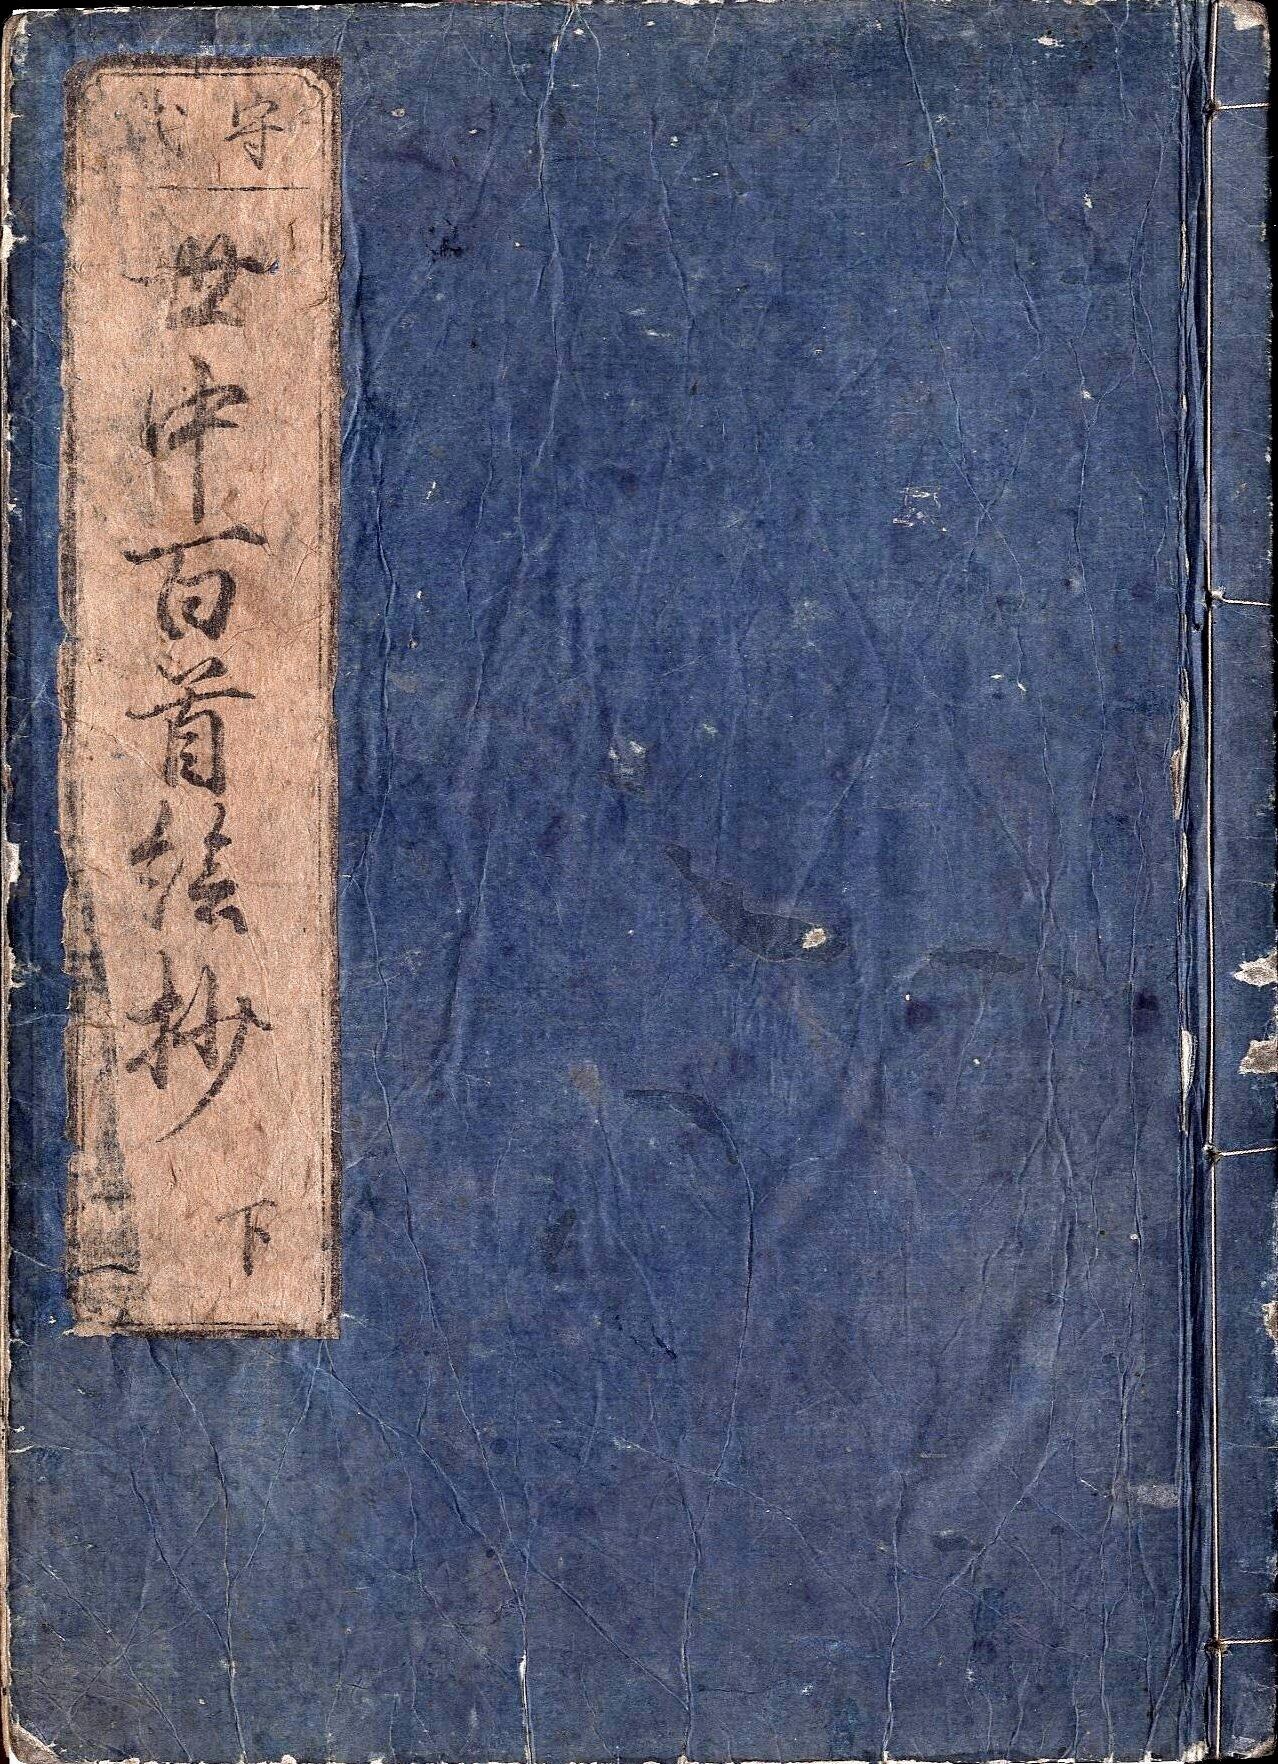 守武
世中百首絵抄
下